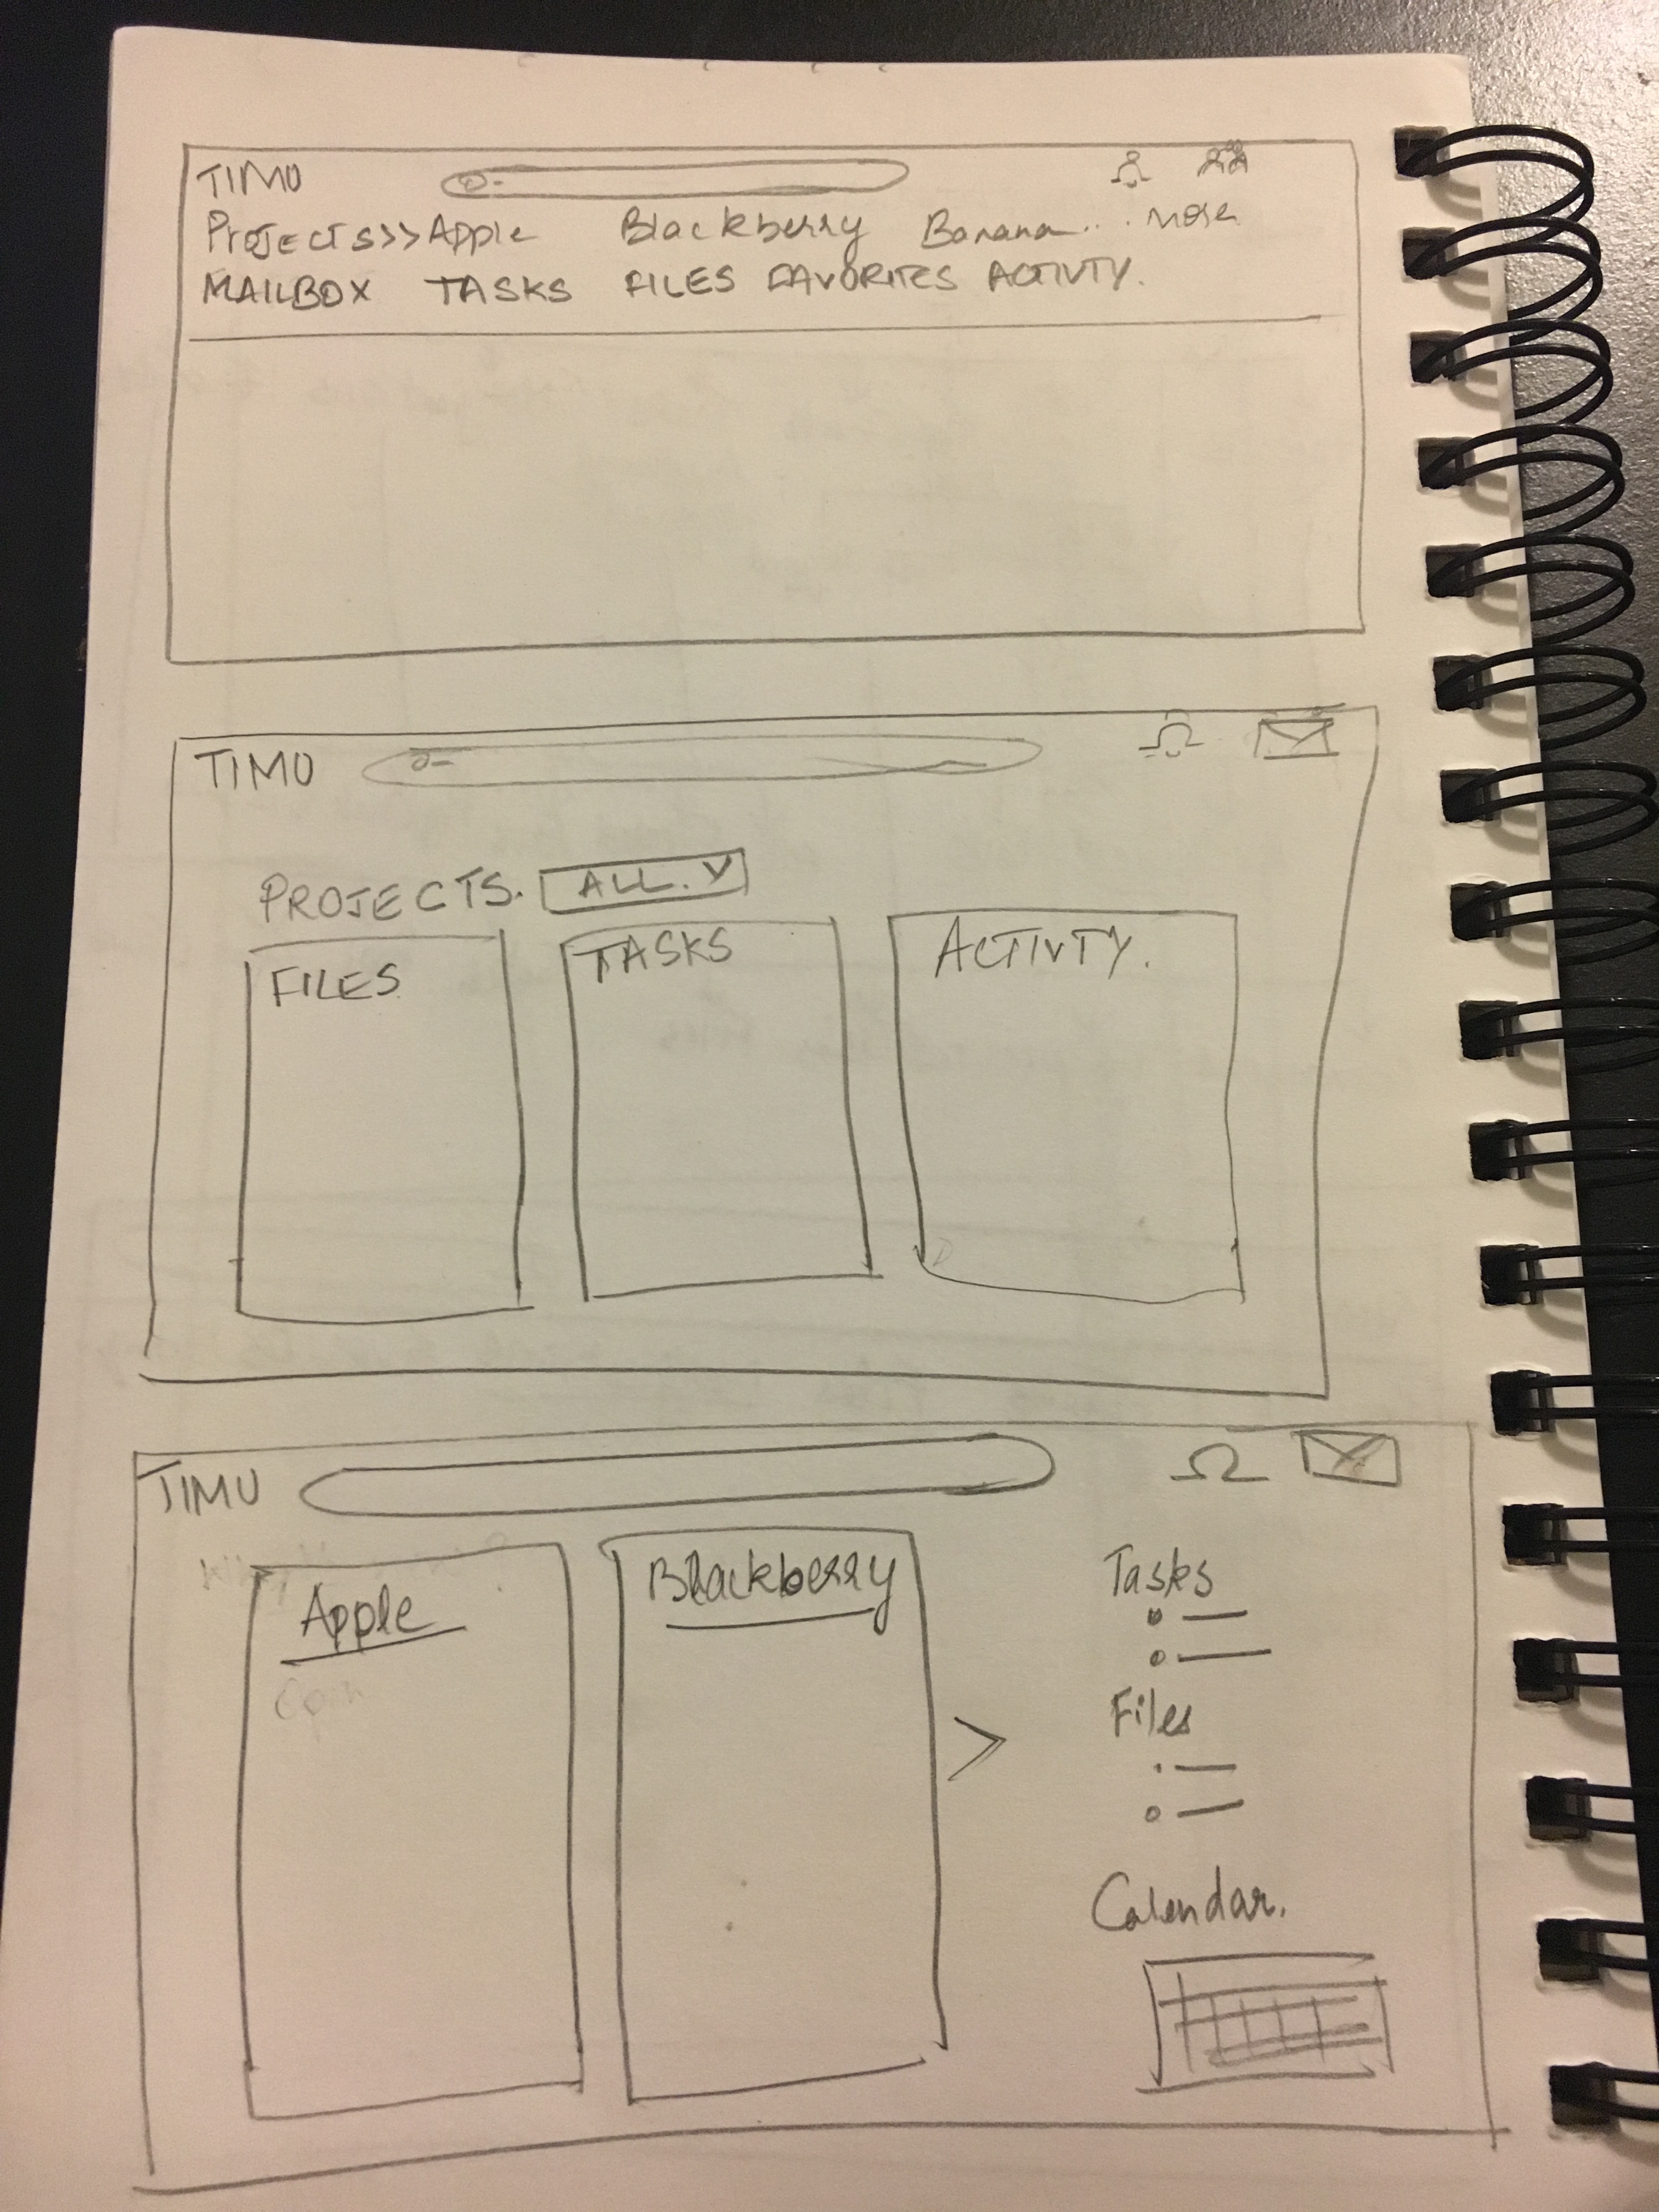 TIMU
PROJECTS>>Apple Blackberry Banana... more
MAILBOX TASKS FILES FAVORITES ACTIVTY.
TIMU
PROJECTS. ALL. V
FILES TASKS ACTIVTY.
TIMU
Apple Blackberry
Tasks
Files
Calendar.